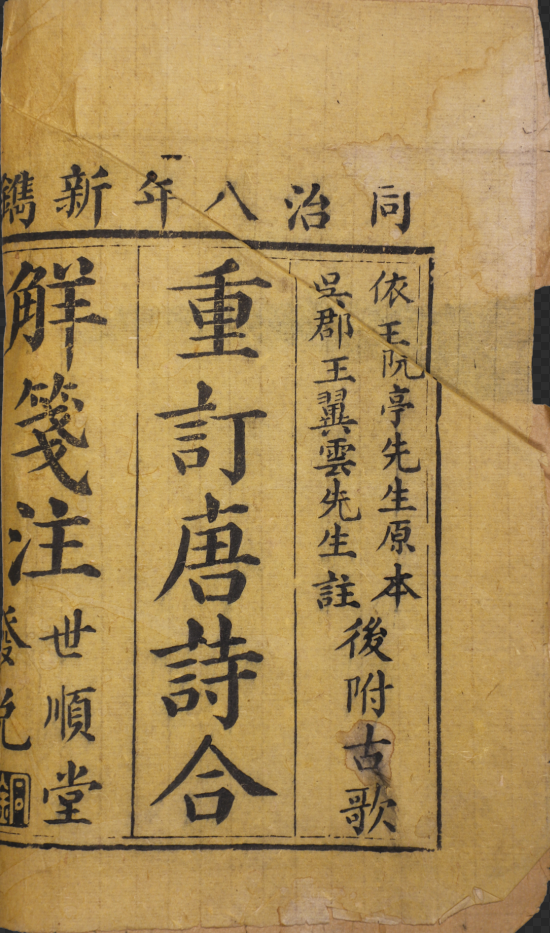 同治八年新鐫
依王阮亭先生原本
吳郡王翼雲先生註
後附古歌
重訂唐詩合
解箋注
世順堂
發兌